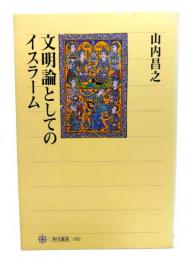 山内昌之
文明論としての
イスラーム
角川選書